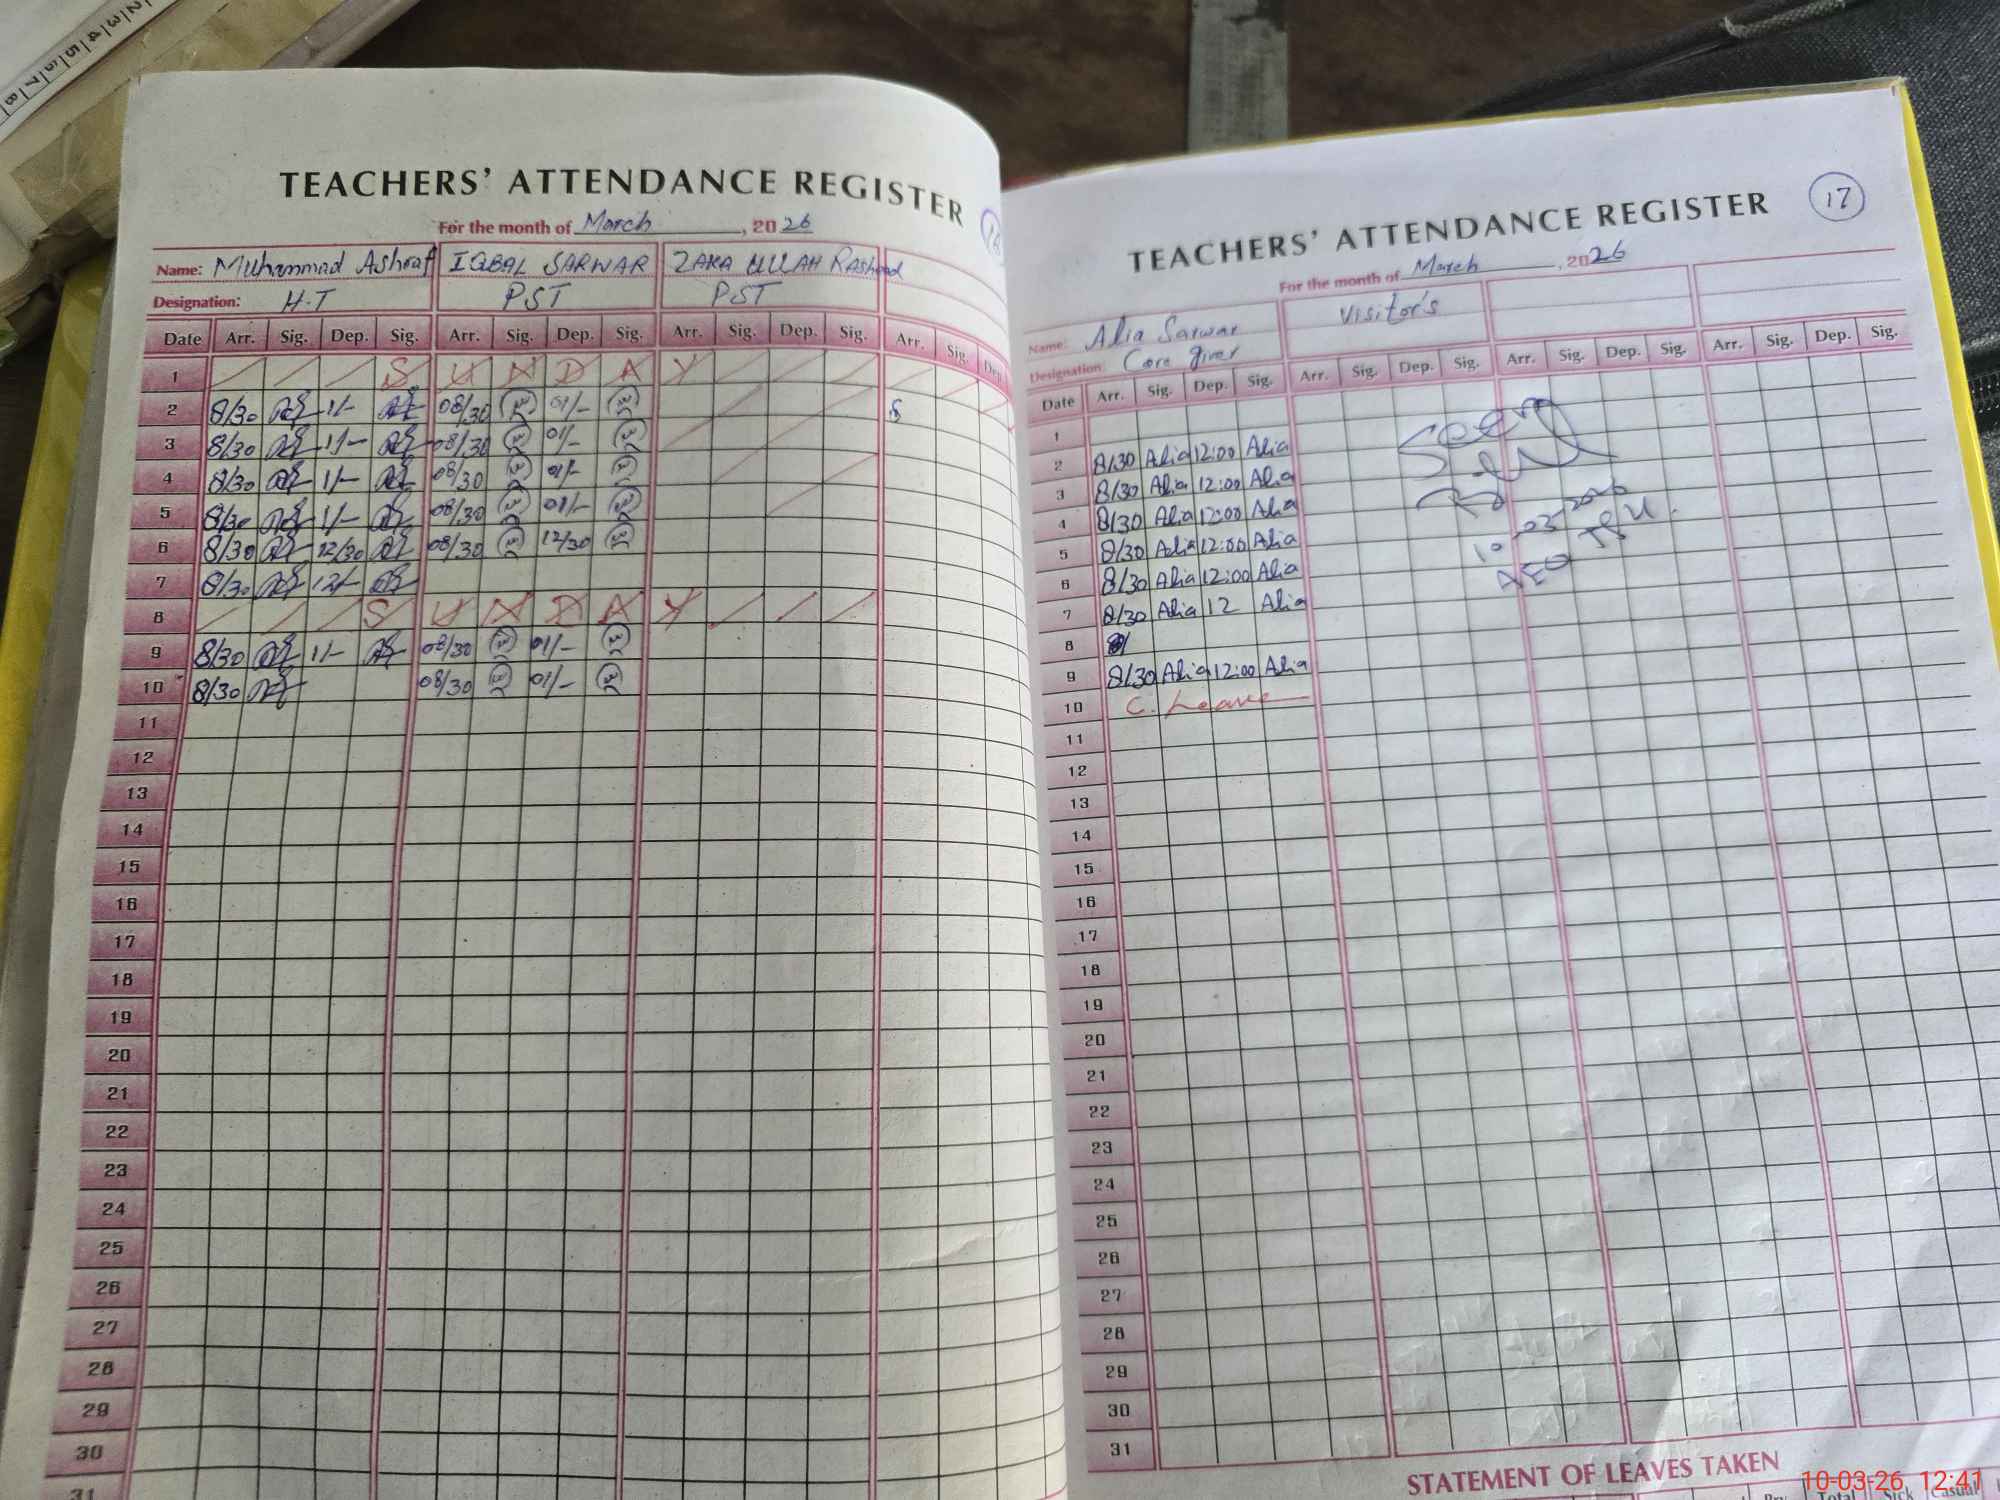 2 3 4 5 6 7 8
TEACHERS' ATTENDANCE REGISTER
For the month of March, 2026
Name: Muhammad Ashraf IQBAL SARWAR ZAKA ULLAH Rasheed
Designation: H.T PST PST
Date Arr. Sig. Dep. Sig. Arr. Sig. Dep. Sig. Arr. Sig. Dep. Sig. Arr. Sig. Dep.
1 S U N D A Y
2 8/30 1/- 08/30 01/-
3 8/30 1/- 08/30 01/-
4 8/30 1/- 08/30 01/-
5 8/30 1/- 08/30 01/-
6 8/30 12/30 08/30 12/30
7 8/30 12/-
8 S U N D A Y
9 8/30 1/- 08/30 01/-
10 8/30 08/30 01/-
11
12
13
14
15
16
17
18
19
20
21
22
23
24
25
26
27
28
29
30
31
17
TEACHERS' ATTENDANCE REGISTER
For the month of March, 2026
Name: Alia Sarwar Visitor's
Designation: Care giver
Date Arr. Sig. Dep. Sig. Arr. Sig. Dep. Sig. Arr. Sig. Dep. Sig. Arr. Sig. Dep. Sig.
1
2 8/30 Alia 12:00 Alia
3 8/30 Alia 12:00 Alia
4 8/30 Alia 12:00 Alia
5 8/30 Alia 12:00 Alia
6 8/30 Alia 12:00 Alia
7 8/30 Alia 12 Alia
8
9 8/30 Alia 12:00 Alia
10 C. Leave
11
12
13
14
15
16
17
18
19
20
21
22
23
24
25
26
27
28
29
30
31
Seen
10-03-2026
AEO
STATEMENT OF LEAVES TAKEN
Total Sick Casual
10-03-26 12:41